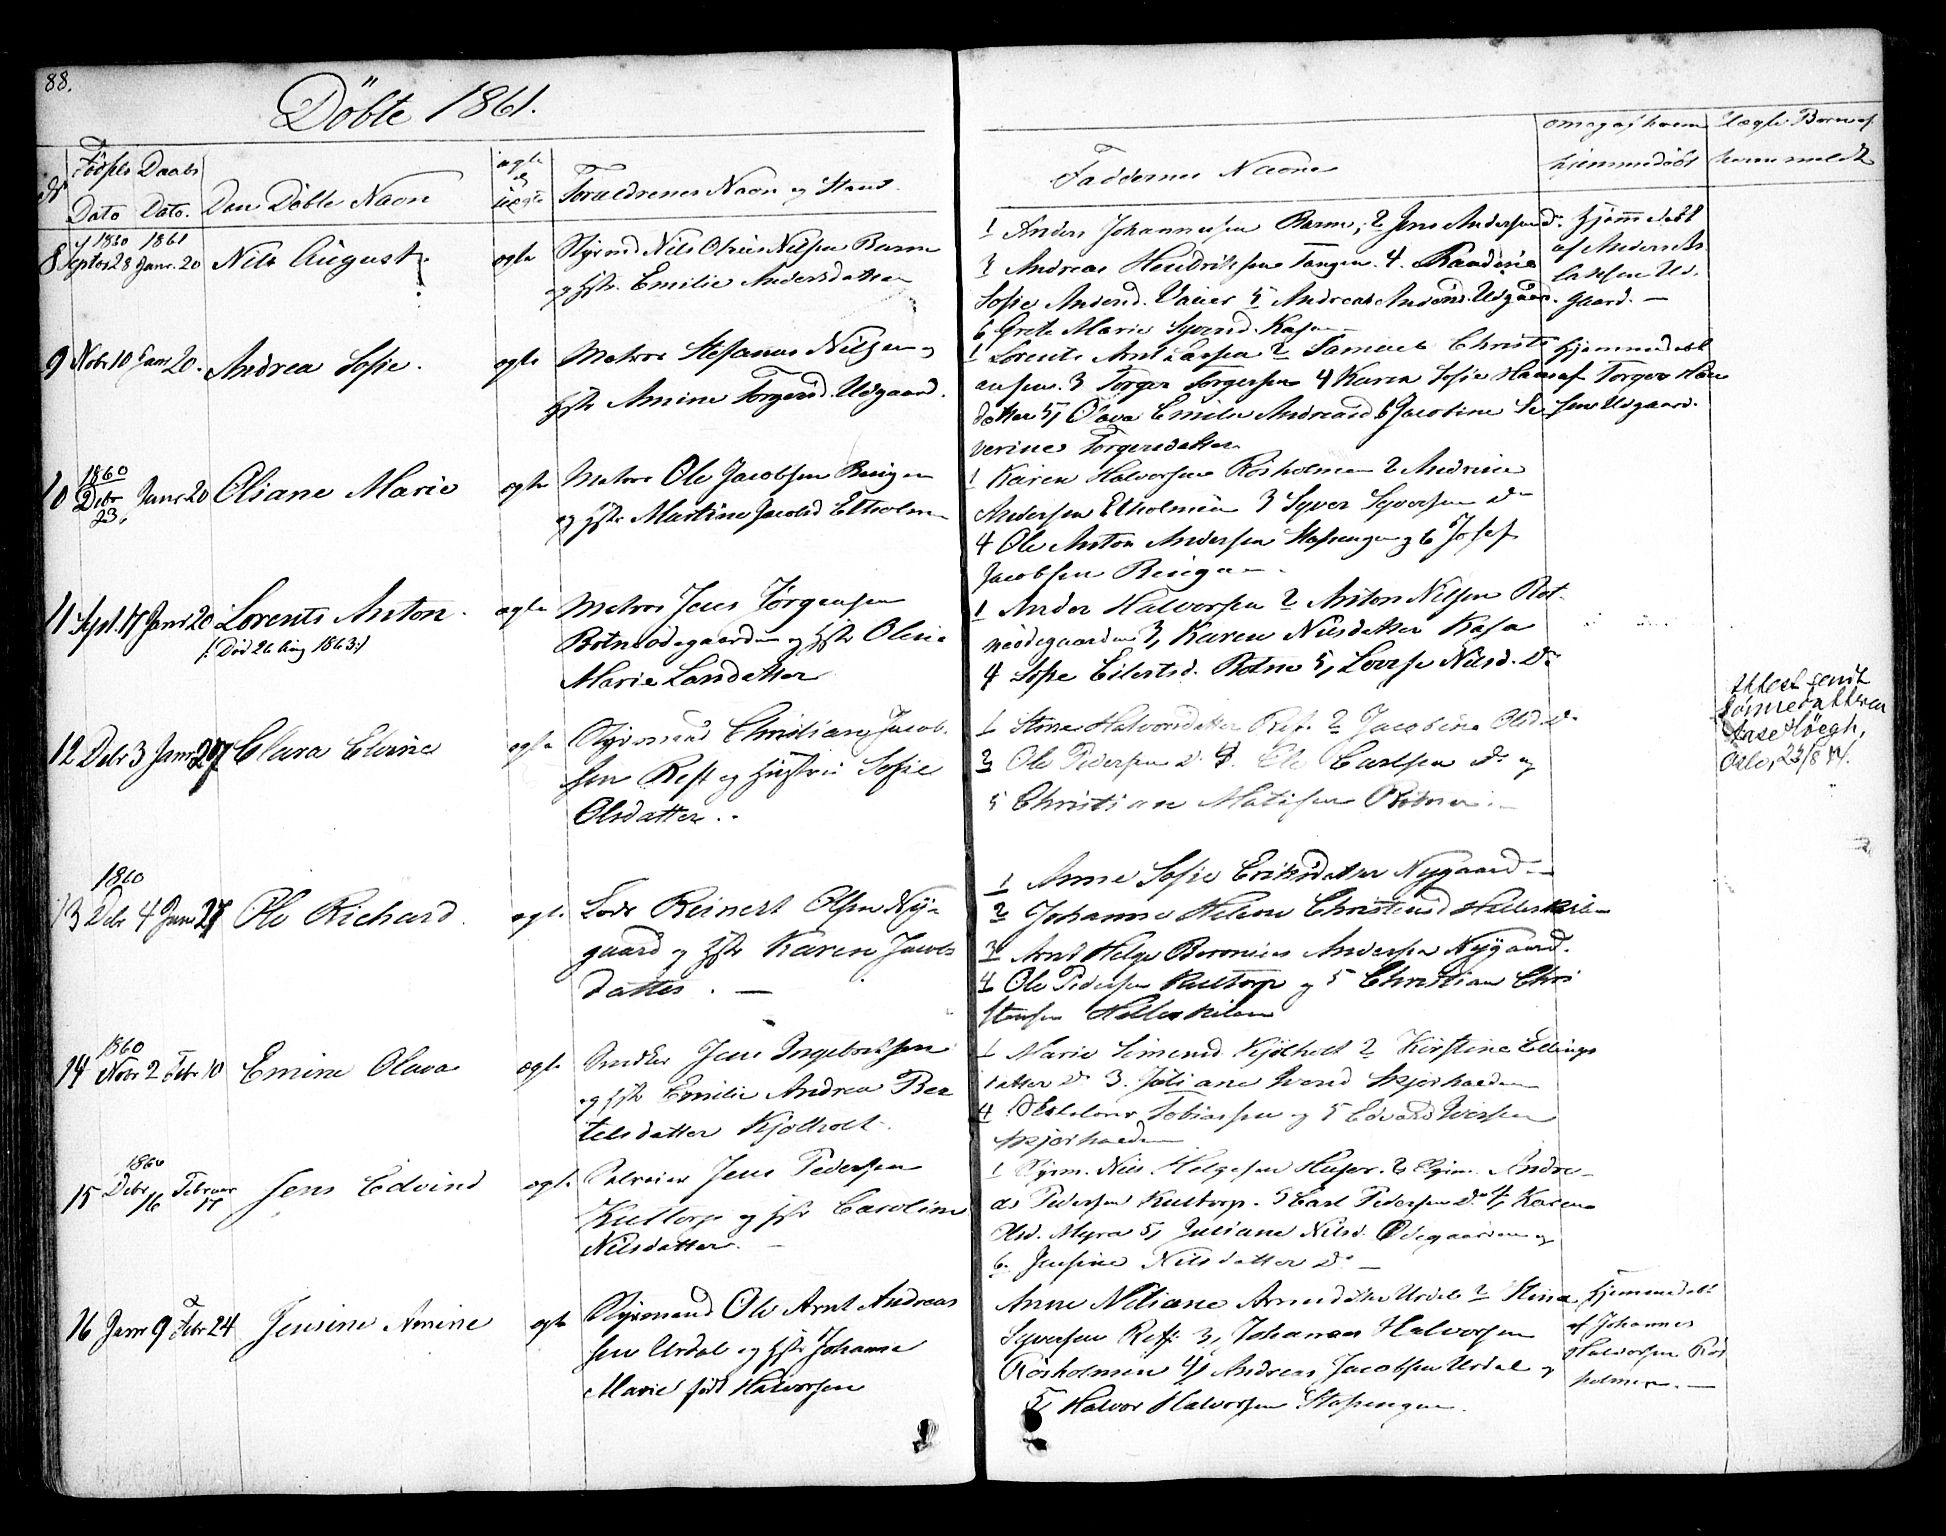 88.
Döbte 1861.
Födsels Daabs
Dato Dato. Den Döbte Navn
ægte el. uægte
Forældrenes Navn og Stand.
Faddernes Navne
om og af hvem hjemmedöbt
Uægte Barn af hvem meldt
8 1860 Septbr 28 1861 Janr. 20 Nils August. ægte Styrmd Nils Olaus Nilsen
og Hstr. Emilie Andersdatter
1 Anders Johannesen 2 Jens Andersen do
3 Andreas Hendriksen Tangen. 4.
Sofie Andersd. 5 Andreas Udgaard.
6 Grete Marie Syversd. Kasa
Hjemmedöbt
af Anders
Udgaard. —
9 Novbr 10 Janr 20. Andrea Sofie. ægte Matros Stefanus Nilsen og
Hstr Amine Torgersd. Udgaard.
1 Lorents Arnt Larsen 2 Samuel Christi
ansen. 3 Torger Torgersen 4 Karen Sofie Hans
datter 5, Olava Emilie Andreasd 6 Jacobine Se
verine Torgersdatter
Hjemmedöbt
af Torger Han
sen Udgaard.
10 1860 Debr 23, Janr 20 Oliane Marie ægte Matros Ole Jacobsen
og Hstr Martine Jacobsd Etholm
1 Karen Halvorsen Rösholmen 2 Andrine
Andersen Etholmen 3 Syver Syversen do
4 Ole Anton Andersen Stafsengen og 6 Josef
Jacobsen
11 Sept. 17 Janr 20 Lorents Anton. ægte Matros Jens Jörgensen
(: Död 26 Aug 1863:)
Botneödegaarden og Hstr Oline
Marie Larsdatter
1 Ander Halvorsen 2 Anton Nilsen Bot
neödegaarden 3, Karen Nilsdatter Kasa
4 Sofie Eilertsd. Botne 5, Lovise Nilsd. do
12 Debr 3 Janr 27 Clara Elvine ægte Styrmand Christian Jacob
sen Refs og Hustru Sofie
Olsdatter..
1 Stine Halvorsdatter Ref. 2 Jacobine Olsd. do
3 Ole Pedersen do 4. Ole Carlsen do og
5 Christian Matisen Botne. —
Attest sendt
Sönnedatteren
Aase Höegh,
Oslo, 23/8
13 1860 Debr 4 Janr 27 Ole Richard. ægte Lods Reinert Olsen Ny-
gaard og Hstr Karen Jacobs
datter. —
1 Anne Sofie Eriksdatter Nygaard —
2 Johanne Helene Christensd Hellekilen
3 Arnt Helge Beronius Andersen Nygaard.
4 Ole Pedersen Kultorp og 5 Christian Chri
stensen Hellekilen
14 1860 Novbr 2 Febr 10 Emine Olava ægte Snedker Jens Ingebretsen
og Hstr Emilie Andrea Ber
telsdatter Kjölholt.
1 Marie Simensd Kjölholt 2 Kirstine Ellings
datter do 3. Juliane Iversd Skjørhaeden
4 Tobiassen og 5 Edvard Iversen
Skjörhaeden
15 1860 Debr 16 Februar 17 Jens Edvind ægte Jens Pedersen
Kultorp og Hstr Caroline
Nilsdatter. —
1 Styrm. Nils Helgesen Huser. 2 Styrm. Andre-
as Pedersen Kultorp. 3 Carl Pedersen do 4, Karen
Olsd. Myra 5, Juliane Nilsd. Ödegaarden og
6. Jensine Nilsdatter do —
16 Janr 9 Febr 24 Jensine Amine ægte Styrmand Ole Arnt Andreas
sen Urdal og Hstr Johanne
Marie födt Halvorsen
Anne Neliane Urdal 2 Stina
Syversen Ref. 3, Johannes Halvorsen
Rösholmen 4, Andreas Jacobsen Urdal og
5 Halvor Halvorsen Stafsengen.
Hjemmedöbt
af Johannes
Halvorsen Rös
holmen. —